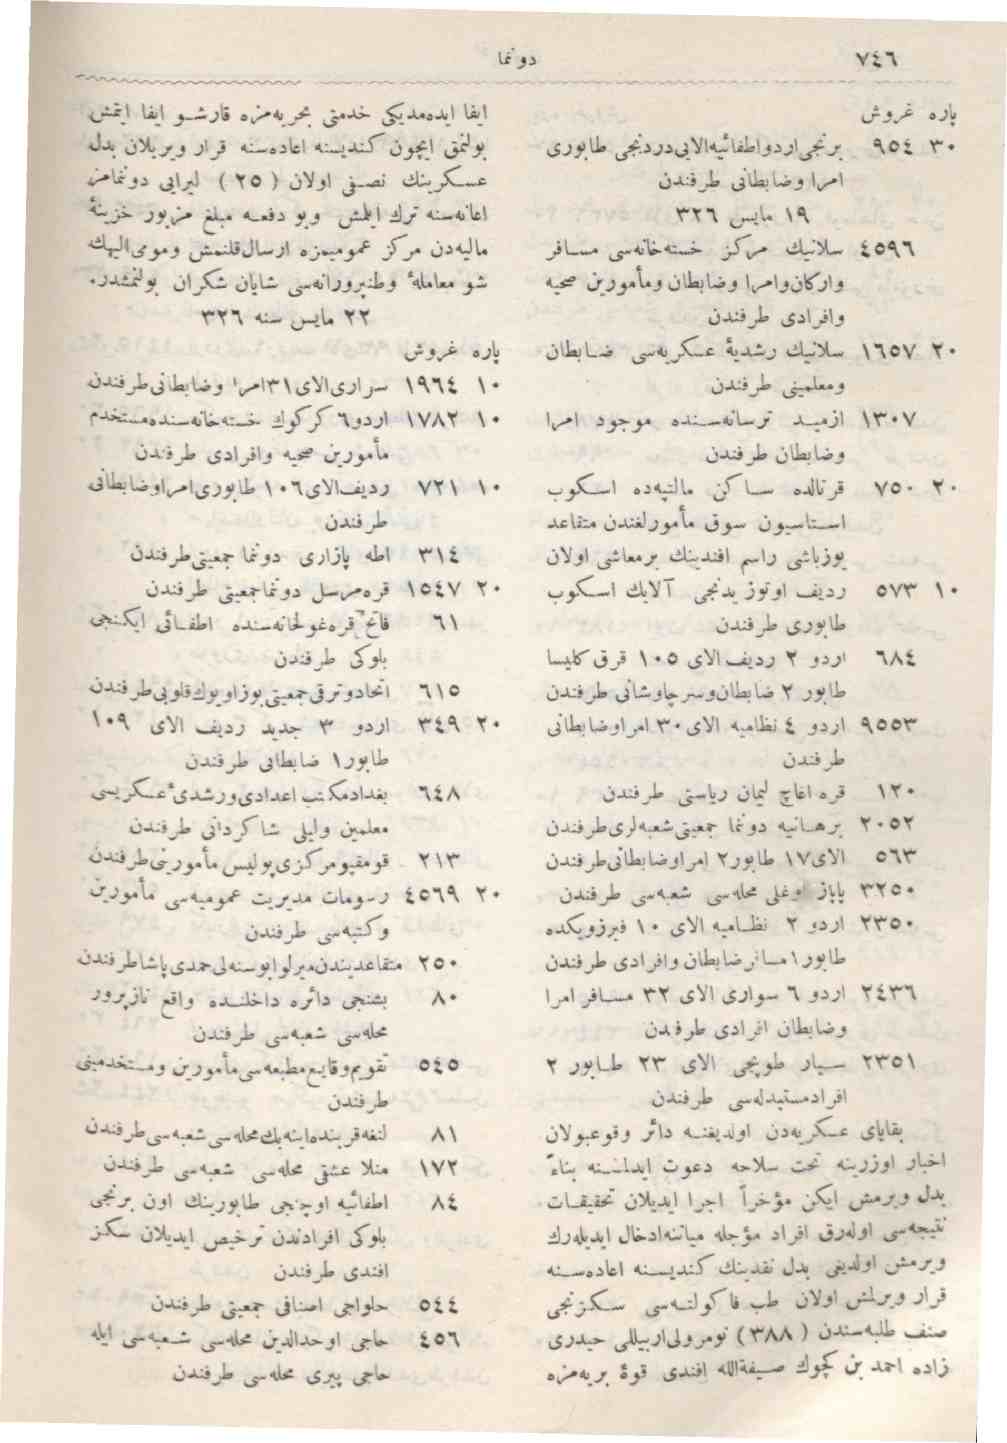 ٧٤٦
دونما
پاره غروش
٣٠ ٩٥٤ برنجی اردو اطفائیه الایی دردنجی طابوری
امرا وضابطانی طرفندن
١٩ مایس ٣٢٦
٤٥٩٦ سلانیك مركز خسته‌خانه‌سی مسافر
واركان وامرا وضابطان ومأمورین صحیه
وافرادی طرفندن
٢٠ ١٦٥٧ سلانیك رشدیهٔ عسكریه‌سی ضابطان
ومعلمینی طرفندن
١٣٠٧ ازمید ترسانه‌سنده موجود امرا
وضابطان طرفندن
٢٠ ٧٥٠ قرتالده ساكن مالتپه‌ده اسكوب
استاسیون سوق مأمورلغندن متقاعد
یوزباشی راسم افندینك برمعاشی اولان
١٠ ٥٧٣ ردیف اوتوز یدنجی آلایك اسكوب
طابوری طرفندن
٦٨٤ اردو ٢ ردیف الای ١٠٥ قرق كلیسا
طابور ٢ ضابطان وسرچاوشانی طرفندن
٩٥٥٣ اردو ٤ نظامیه الای ٣٠ امرا وضابطانی
طرفندن
١٢٠ قره اغاچ لیمان ریاستی طرفندن
٢٠٥٢ برهانیه دونما جمعیتی شعبه‌لری طرفندن
٥٦٣ الای ١٧ طابور ٢ امرا وضابطانی طرفندن
٣٢٥٠ پاپاز اوغلی محله‌سی شعبه‌سی طرفندن
٢٣٥٠ اردو ٢ نظامیه الای ١٠ فیرزوبكده
طابور ١ مسافر ضابطان وافرادی طرفندن
٢٤٣٦ اردو ٦ سواری الای ٣٢ مسافر امرا
وضابطان افرادی طرفندن
٢٣٥١ سیار طوپجی الای ٢٣ طابور ٢
افراد مستبدله‌سی طرفندن
بقایای عسكریه‌دن اولدیغنه دائر وقوعبولان
اخبار اوزرینه تحت سلاحه دعوت ایدلمسنه بناءً
بدل ویرمش ایكن مؤخراً اجرا ایدیلان تحقیقات
نتیجه‌سی اوله‌رق افراد مؤجله میاننه ادخال ایدیله‌رك
ویرمش اولدیغی بدل نقدینك كندیسنه اعاده‌سنه
قرار ویرلمش اولان طب فاكولته‌سی سكزنجی
صنف طلبه‌سندن (٣٨٨) نومرولی اربیللی حیدری
زاده احمد بن كچوك صبغةالله افندی قوهٔ بریه‌مزه
ایفا ایده‌مدیكی خدمتی بحریه‌مزه قارشو ایفا ایتمش
بولنمق ایچون كندیسنه اعاده‌سنه قرار ویریلان بدل
عسكرینك نصفی اولان (٢٥) لیرایی دونمامز
اعانه‌سنه ترك ایلمش وبو دفعه مبلغ مزبور خزینهٔ
مالیه‌دن مركز عمومیمزه ارسال قلنمش ومومی‌الیهك
شو معاملهٔ وطنپرورانه‌سی شایان شكران بولنمشدر.
٢٢ مایس سنه ٣٢٦
پاره غروش
١٠ ١٩٦٤ سراری الای ٣١ امرا وضابطانی طرفندن
١٠ ١٧٨٢ اردو ٦ كركوك خسته‌خانه‌سنده مستخدم
مأمورین صحیه وافرادی طرفندن
١٠ ٧٢١ ردیف الای ١٠٦ طابوری امرا وضابطانی
طرفندن
٣١٤ اطه پازاری دونما جمعیتی طرفندن
٢٠ ١٥٤٧ قره‌مرسل دونما جمعیتی طرفندن
٦١ فاتح قره‌غولخانه‌سنده اطفائی ایكنجی
بلوكی طرفندن
٦١٥ اتحاد وترقی جمعیتی بوزاویوك قلوبی طرفندن
٢٠ ٣٤٩ اردو ٣ جدید ردیف الای ١٠٩
طابور ١ ضابطانی طرفندن
٦٤٨ بغداد مكتب اعدادی ورشدیٔ عسكریسی
معلمین ولیلی شاكرداتی طرفندن
٢١٣ قومقپو مركزی پولیس مأمورینی طرفندن
٢٠ ٤٥٦٩ رسومات مدیریت عمومیه‌سی مأمورین
وكتبه‌سی طرفندن
٢٥٠ متقاعدیندن میرلوا بوسنه‌لی حمدی پاشا طرفندن
٨٠ بشنجی دائره داخلنده واقع نازپرور
محله‌سی شعبه‌سی طرفندن
٥٤٥ تقویم وقایع مطبعه‌سی مأمورین ومستخدمینی
طرفندن
٨١ لنغه قربنده اینه‌بك محله‌سی شعبه‌سی طرفندن
١٧٢ منلا عشقی محله‌سی شعبه‌سی طرفندن
٨٤ اطفائیه اوچنجی طابورینك اون برنجی
بلوكی افرادندن ترخیص ایدیلان سكز
افندی طرفندن
٥٤٤ حلواجی اصنافی جمعیتی طرفندن
٤٥٦ حاجی اوحدالدین محله‌سی شعبه‌سی ایله
حاجی پیری محله‌سی طرفندن